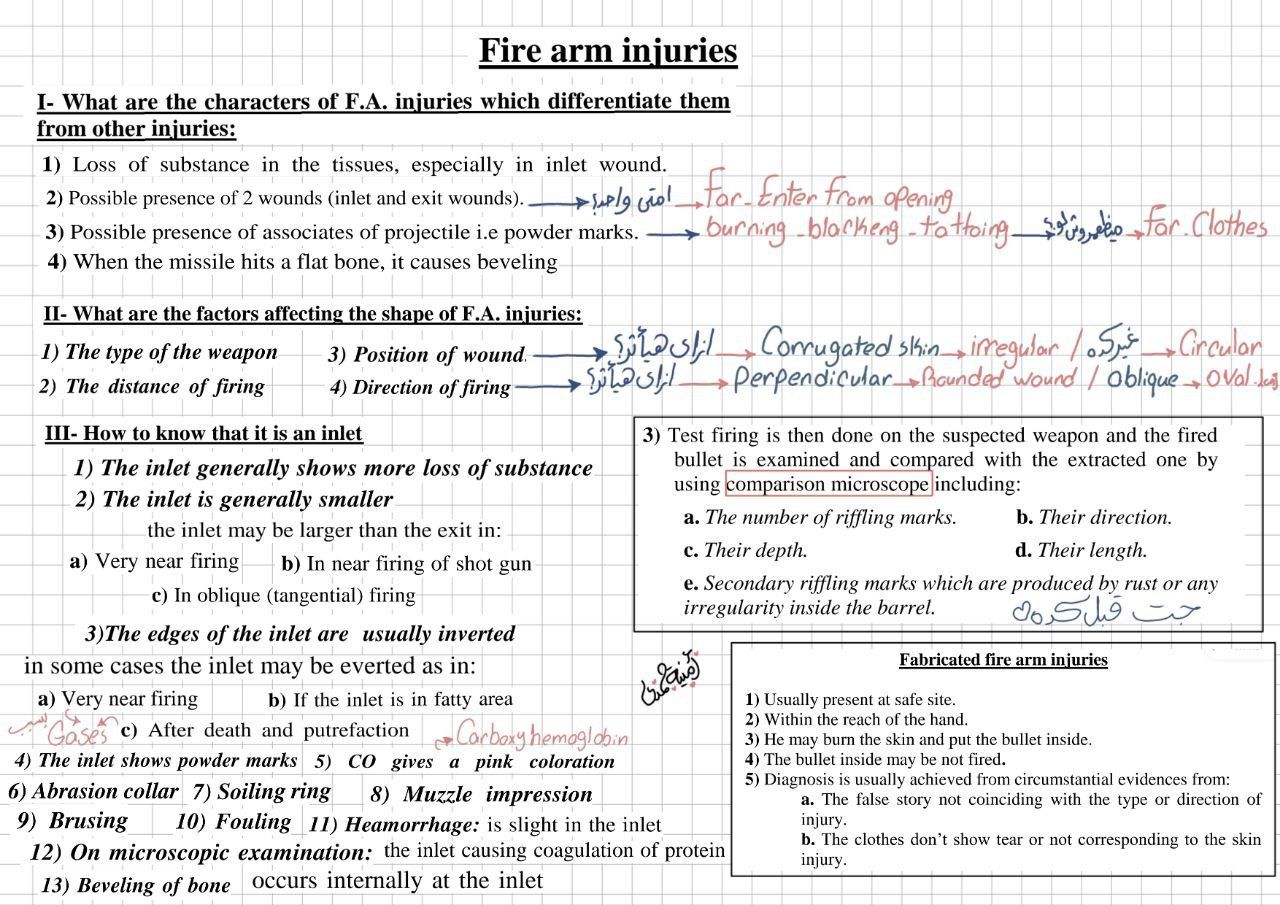 Fire arm injuries
I- What are the characters of F.A. injuries which differentiate them
from other injuries:
1) Loss of substance in the tissues, especially in inlet wound.
2) Possible presence of 2 wounds (inlet and exit wounds). امتى واحد؟ Far - Enter from opening
3) Possible presence of associates of projectile i.e powder marks. burning - blackeng - tattoing ميظهروش لو؟ Far - Clothes
4) When the missile hits a flat bone, it causes beveling
II- What are the factors affecting the shape of F.A. injuries:
1) The type of the weapon
3) Position of wound ازاى هيأثر؟ Corrugated skin irregular / غير كده Circular
2) The distance of firing
4) Direction of firing ازاى هيأثر؟ Perpendicular Rounded wound / Oblique Oval
III- How to know that it is an inlet
1) The inlet generally shows more loss of substance
2) The inlet is generally smaller
the inlet may be larger than the exit in:
a) Very near firing b) In near firing of shot gun
c) In oblique (tangential) firing
3)The edges of the inlet are usually inverted
in some cases the inlet may be everted as in:
a) Very near firing b) If the inlet is in fatty area
بسبب Gases c) After death and putrefaction Carboxyhemoglobin
4) The inlet shows powder marks 5) CO gives a pink coloration
6) Abrasion collar 7) Soiling ring 8) Muzzle impression
9) Brusing 10) Fouling 11) Heamorrhage: is slight in the inlet
12) On microscopic examination: the inlet causing coagulation of protein
13) Beveling of bone occurs internally at the inlet
3) Test firing is then done on the suspected weapon and the fired
bullet is examined and compared with the extracted one by
using comparison microscope including:
a. The number of riffling marks. b. Their direction.
c. Their depth. d. Their length.
e. Secondary riffling marks which are produced by rust or any
irregularity inside the barrel.
جت قبل كده
Fabricated fire arm injuries
1) Usually present at safe site.
2) Within the reach of the hand.
3) He may burn the skin and put the bullet inside.
4) The bullet inside may be not fired.
5) Diagnosis is usually achieved from circumstantial evidences from:
a. The false story not coinciding with the type or direction of
injury.
b. The clothes don't show tear or not corresponding to the skin
injury.